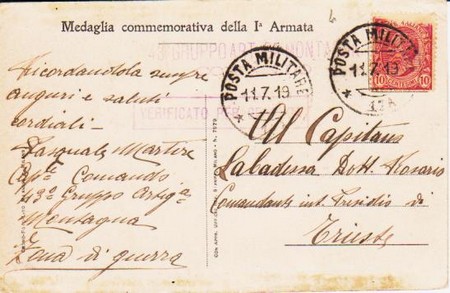 Medaglia commemorativa della Iª Armata
GRUPPO ART. MONTA
POSTA MILITARE
11.7.19
POSTA MILITARE
11.7.19
10
VERIFICATO PER
Ricordandola sempre
auguri e saluti
cordiali -
Pasquale Martire
Cap.le Comando
43º Gruppo Artig.a
Montagna
Zona di guerra
Al Capitano
Labadessa Dott. Rosario
Comandante int. Presidio di
Trieste